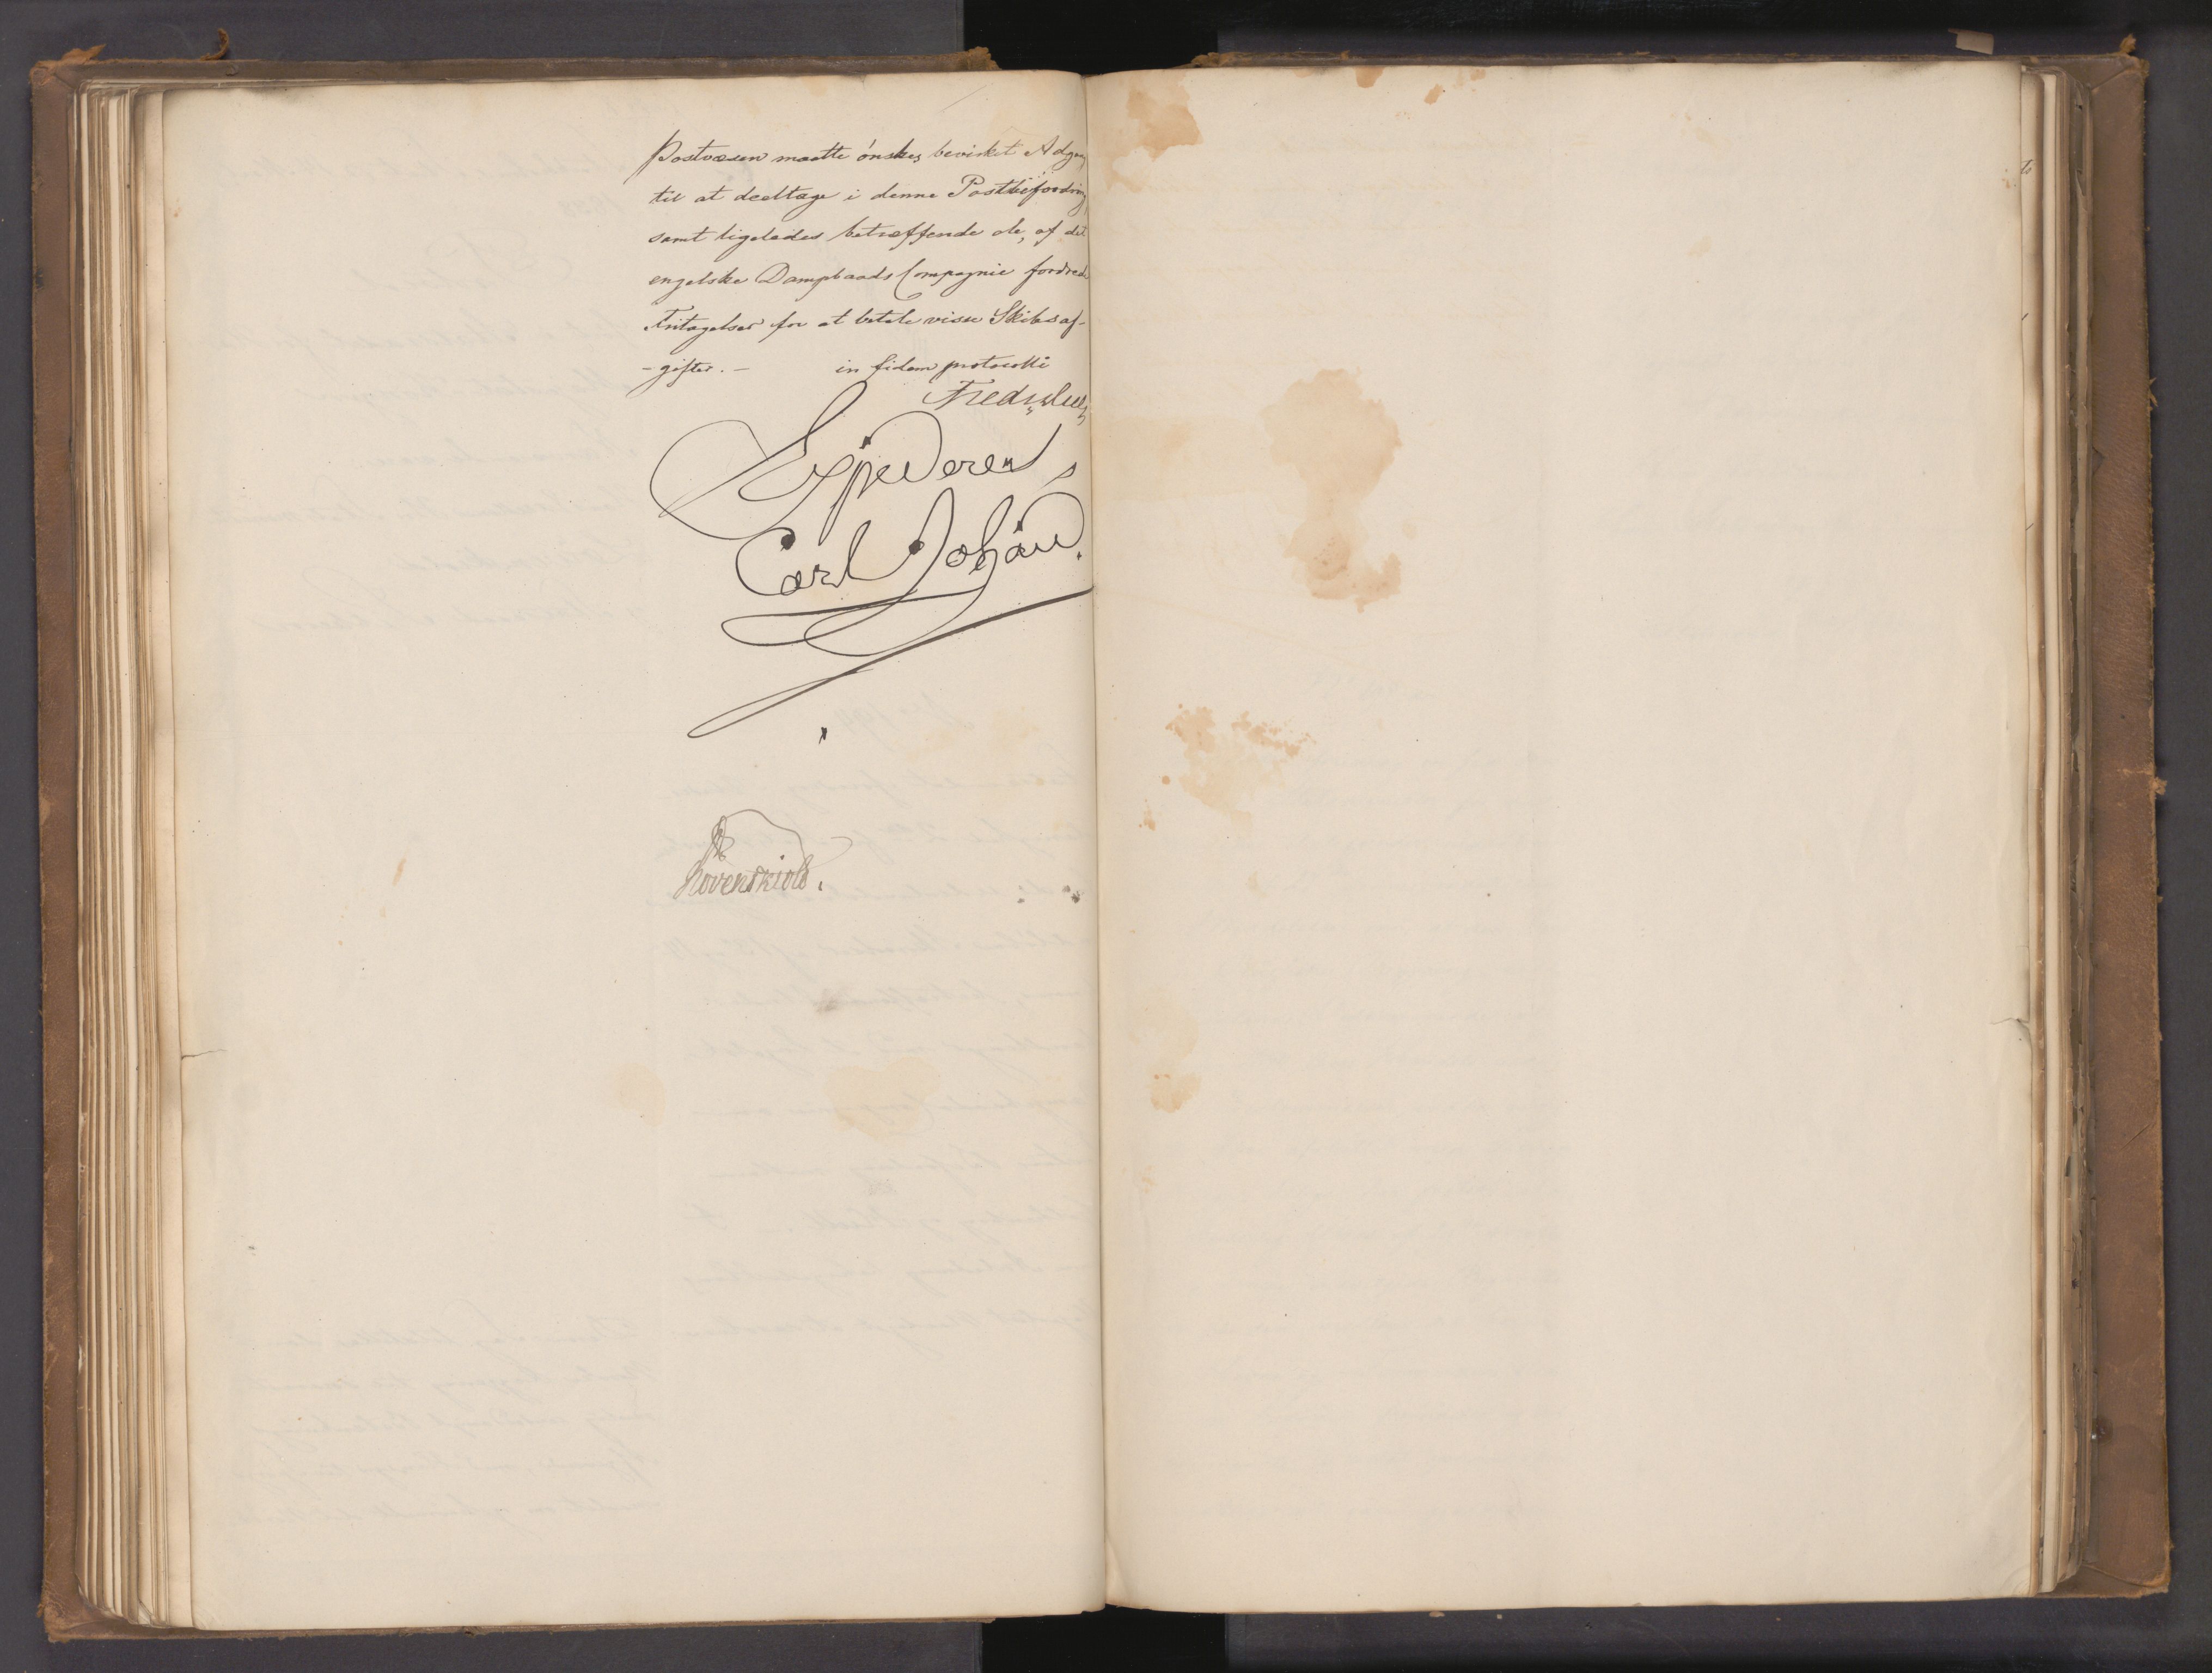 Postvæsen maatte ønskes bevirket Adgang
til at deeltage i denne Postbefordring,
samt ligeledes betræffende de, af det
engelske Dampbaads Compagnie fordrede
Fritagelser for at betale visse Skibsaf-
-gifter. — in fidem protocolli
Expederes,
Carl Johan.
Løvenskiold.